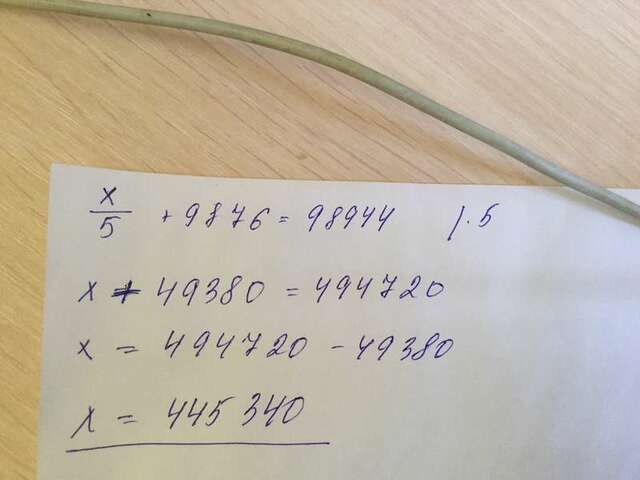 x/5 + 9876 = 98944 |·5
x + 49380 = 494720
x = 494720 - 49380
x = 445340